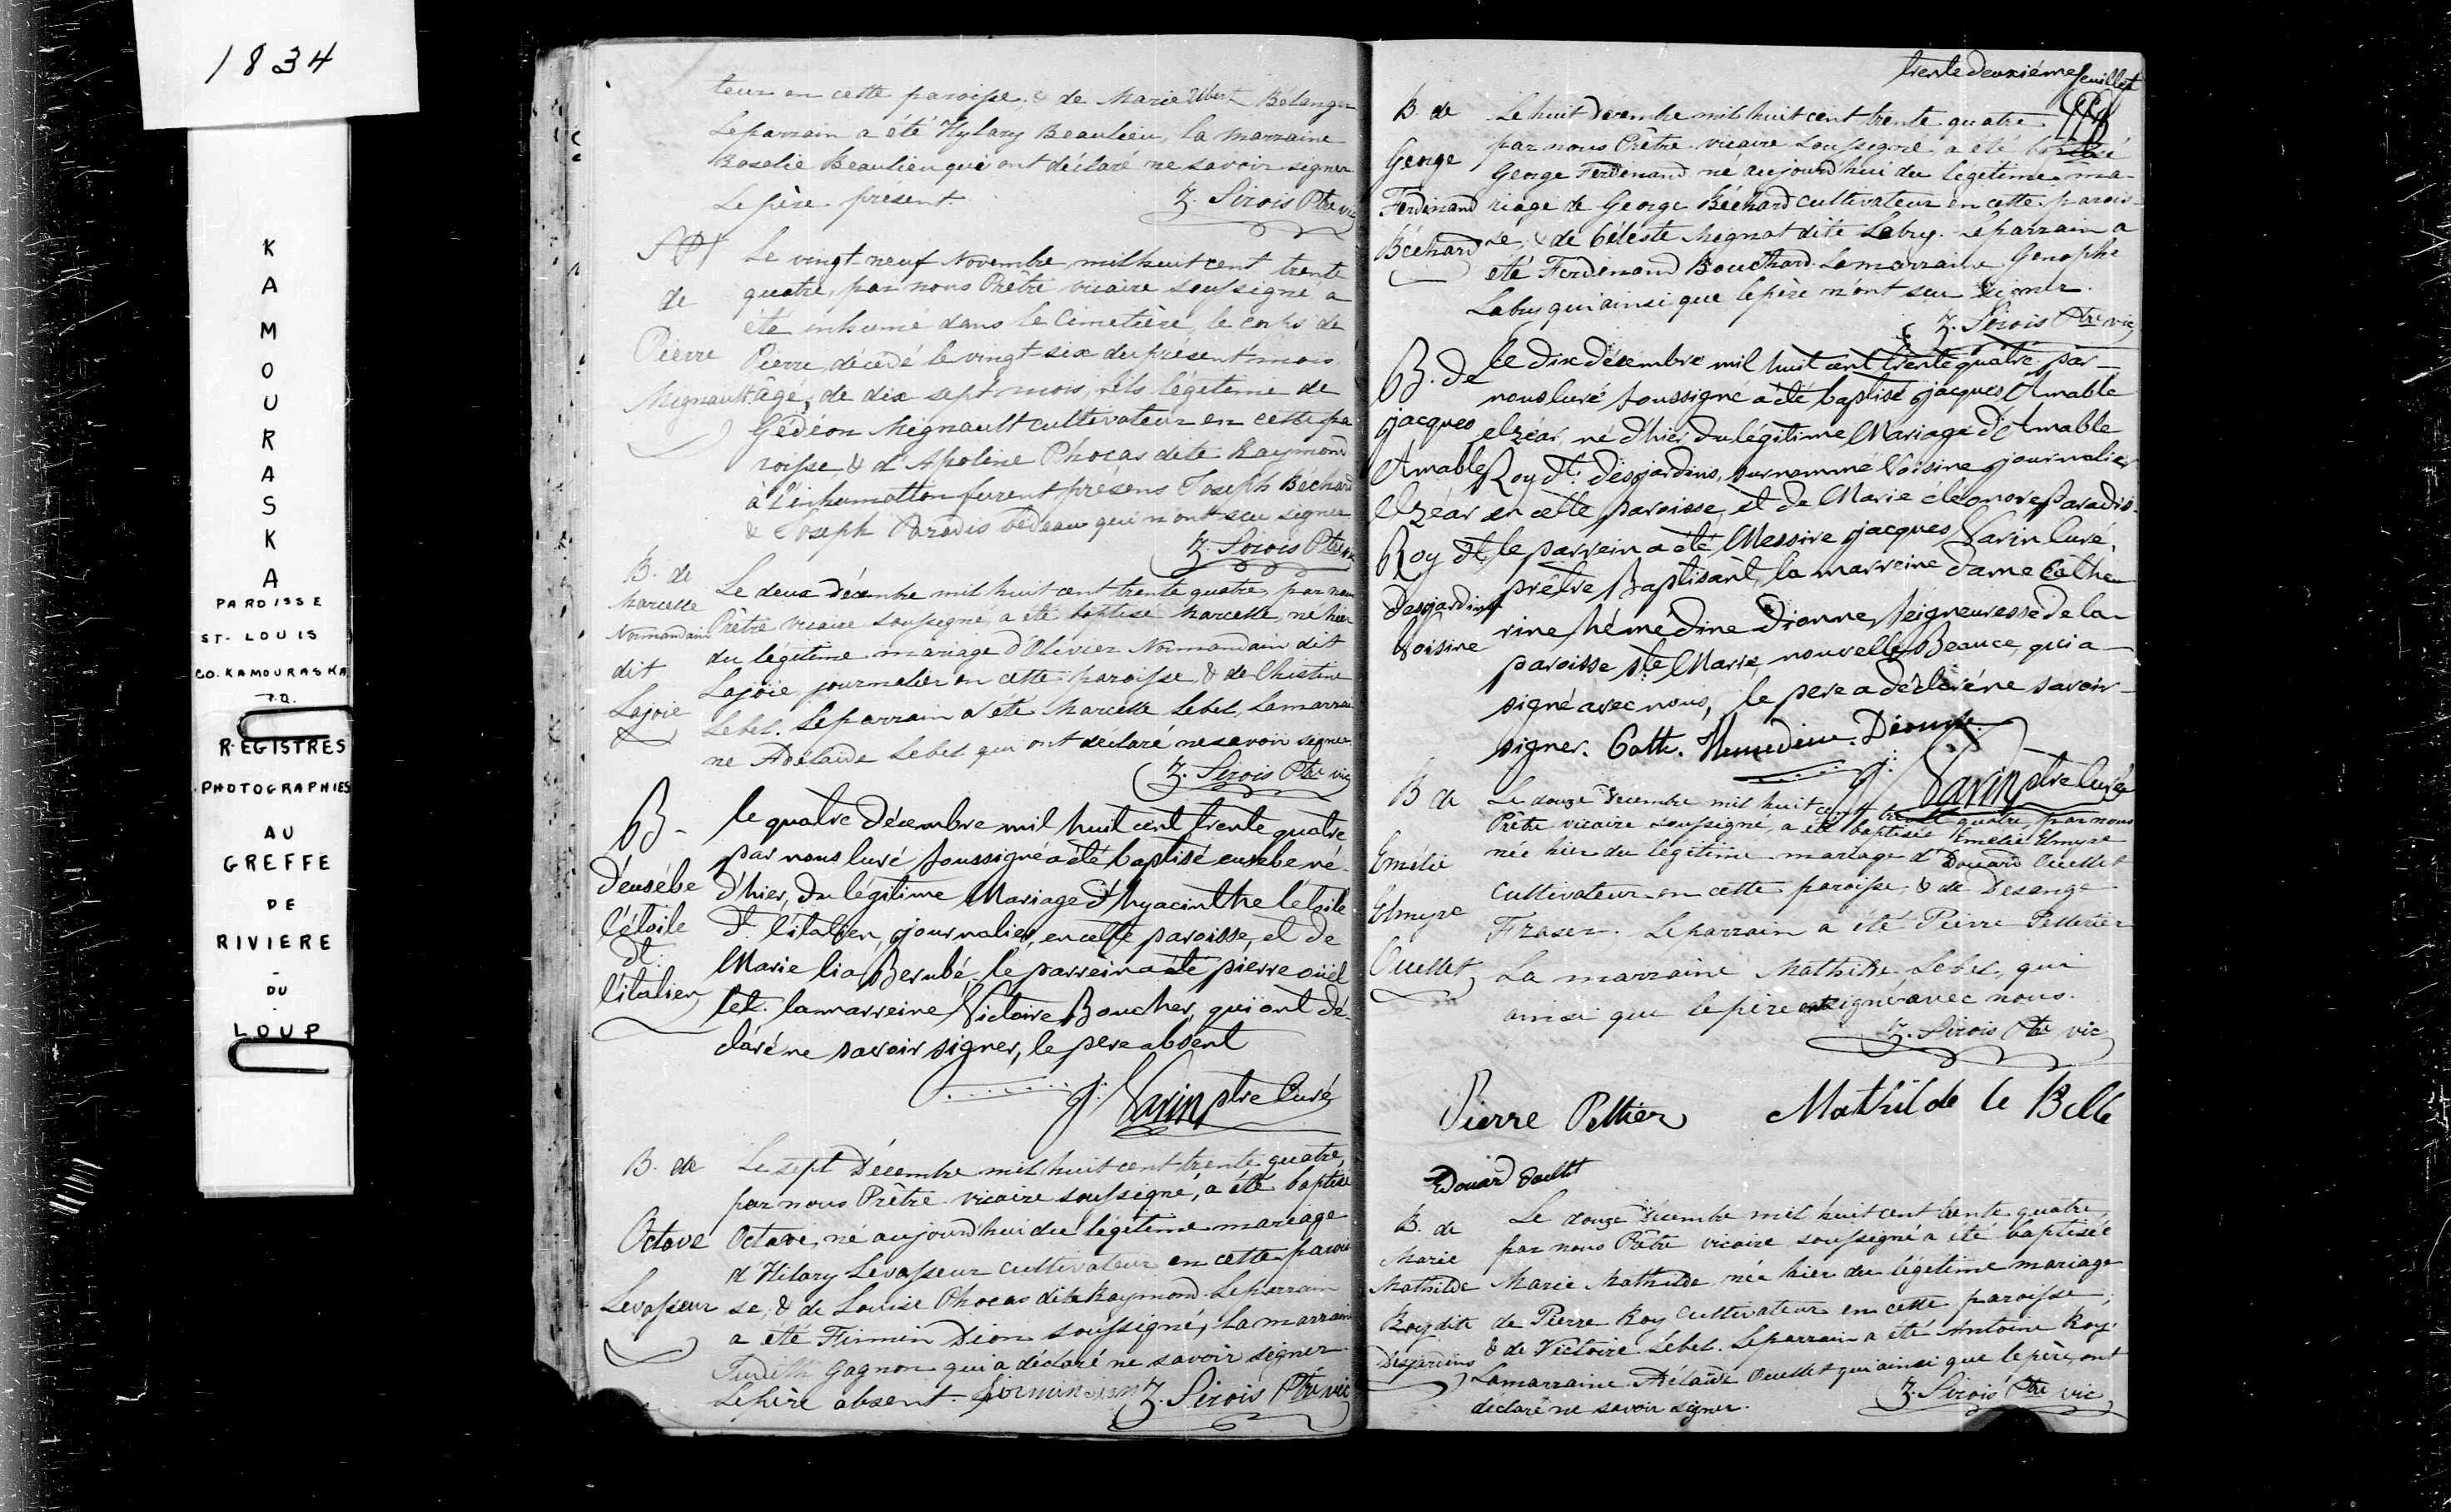 1834
KAMOURASKA
PAROISSE
ST-LOUIS
CO. KAMOURASKA
P.Q.
REGISTRES
PHOTOGRAPHIES
AU
GREFFE
DE
RIVIERE
-
DU
-
LOUP
teur en cette paroisse, & de Marie Ubert Bélanger
Le parrain a été Hylary Beaulieu, la marraine
Roselie Beaulieu qui ont déclaré ne savoir signer
Le père présent.
Z. Sirois Ptre vic
S
de
Pierre
Mignault
Le vingt-neuf Novembre mil huit cent trente
quatre, par nous Prêtre vicaire soussigné a
été inhumé dans le Cimetière, le corps de
Pierre, décédé le vingt-six du présent mois
âgé, de dix sept mois, fils légitime de
Gédéon Mignault cultivateur en cette pa
roisse, & d'Apoline Phocas dite Raymond
à l'inhumation furent présens Joseph Béchard
& Joseph Paradis bedeau qui n'ont seu signer
Z. Sirois Ptre vic
B. de
Marcelle
Normandain
dit
Lajoie
Le deux décembre mil huit cent trente quatre, par nous
Prêtre vicaire soussigné, a été baptisé Marcelle, né hier
du légitime mariage d'Olivier Normandain dit
Lajoie journalier en cette paroisse, & de Christine
Lebel. Le parrain a été Marcelle Lebel, la marrai
ne Adélaïde Lebel qui ont déclaré ne savoir signer.
Z. Sirois Ptre vic
B-
d'eusébe
l'étoile
dt.
l'italien
le quatre décembre mil huit cent trente quatre
par nous curé soussigné a été baptisé eusebe né
d'hier, du légitime Mariage d'hyacinthe létoile
dt. l'italien, journalier, en cette paroisse, et de
Marie lia Berubé, le parrein a été pierre oüel
let. la marreine Victoire Boucher, qui ont dé-
claré ne savoir signer, le pere absent
J: Varin ptre Curé
B. de
Octave
Levasseur
Le sept Décembre mil huit cent trente quatre,
par nous Prêtre vicaire soussigné, a été baptisé
Octave, né aujourd'hui du légitime mariage
d'Hilary Levasseur cultivateur en cette parois
se, & de Louise Phocas dite Raymond. Le parrain
a été Firmin Dion soussigné, la marraine
Judith Gagnon qui a déclaré ne savoir signer.
Le père absent. firmin dion Z. Sirois Ptre vic
trente deuxième feuillet
B. de
George
Ferdinand
Béchard
Le huit décembre mil huit cent trente quatre
par nous Prêtre vicaire soussigné, a été baptisé
George Ferdinand né aujourd'hui du légitime ma-
riage de George Béchard cultivateur en cette parois-
se, & de Céleste Mignot dite Labry. Le parrain a
été Ferdinand Bouchard. La marraine Genophe
Labry qui ainsi que le père n'ont seu signer.
Z. Sirois Ptre vic
B. de
jacques
Amable
elzéar
Roy dt.
desjardins
Voisine
le dix décembre mil huit cent trente quatre par
nous curé soussigné a été baptisé jacques Amable
elzéar, né d'hier, du légitime Mariage d'Amable
Roy dt. desjardins, surnommé Voisine journalier
en cette paroisse, et de Marie éléonore Paradis.
le parrein a été Messire jacques Varin Curé,
prêtre Baptisant, la marreine dame Cathe
rine hémédine dionne, seigneuresse de la
paroisse ste. Marie, nouvelle Beauce, qui a
signé avec nous, le pere a déclaré ne savoir
signer. Cath. Hemedine. Dionne.
J: Varin ptre Curé
B de
Emélie
Elmyre
Ouellet
Le douze Décembre mil huit cent trente quatre, par nous
Prêtre vicaire soussigné, a été baptisée Emélie Elmyre
née hier du légitime mariage d'Edouard Ouellet
cultivateur en cette paroisse, & de Desange
Fraser. Le parrain a été Pierre Pelletier
La marraine Mathilde Lebel, qui
ainsi que le père ont signé avec nous.
Z. Sirois Ptre vic
Pierre Peltier Mathilde le Belle
Edouard Ouellet
B. de
Marie
Mathilde
Roy dite
Desjardins
Le douze Décembre mil huit cent trente quatre,
par nous Prêtre vicaire soussigné a été baptisée
Marie Mathilde, née hier du légitime mariage
de Pierre Roy cultivateur en cette paroisse,
& de Victoire Lebel. Le parrain a été Antoine Roy.
La marraine Adélaïde Ouellet qui ainsi que le père, ont
déclaré ne savoir signer.
Z. Sirois Ptre vic